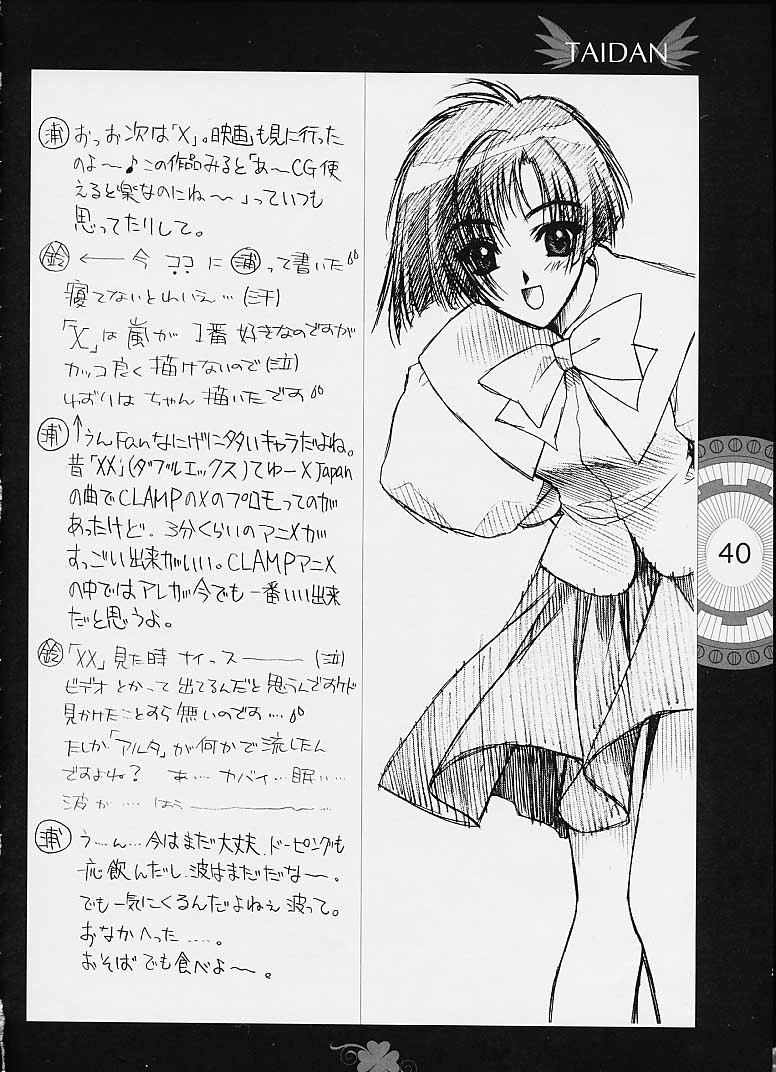 TAIDAN
浦 おっお次は「X」。映画も見に行った
のよ〜♪この作品みると「あ〜CG使
えると楽なのにね〜」っていつも
思ってたりして。
鈴 ← 今 ?? に 浦 って書いた
寝てないとわいえ… (汗)
「X」は嵐が 1番 好きなのですが
カッコ良く 描けないので (泣)
ゆずりは ちゃん 描いたです
浦 ↑うんFanなにげに多いキャラだよね。
昔「XX」(ダブルエックス)てゆーX Japan
の曲でCLAMPのXのプロモってのが
あったけど、3分くらいのアニメが
すっごい出来がいい。CLAMPアニメ
の中ではアレが今でも一番いい出来
だと思うよ。
鈴 「XX」見た時 ナイっス―― (泣)
ビデオ とかって 出てるんだと 思うんですケド
見かけたことすら 無いのです…
たしか「アルタ」が何かで流したん
ですよね? あ… ヤバイ…眠い…
波が… はぅ――…
浦 う……ん…今はまだ大丈夫、ドーピングも
一応飲んだし、波はまだだな〜。
でも一気にくるんだよねぇ 波って。
おなかへった……。
おそばでも食べよ〜。
40